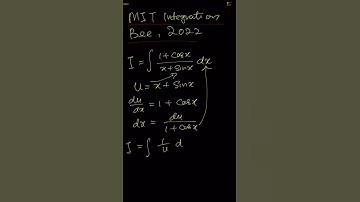 MIT Integration
Bee, 2022
I = ∫ (1 + cosx)/(x + sinx) dx
u = x + sinx
du/dx = 1 + cosx
dx = du/(1 + cosx)
I = ∫ 1/u d